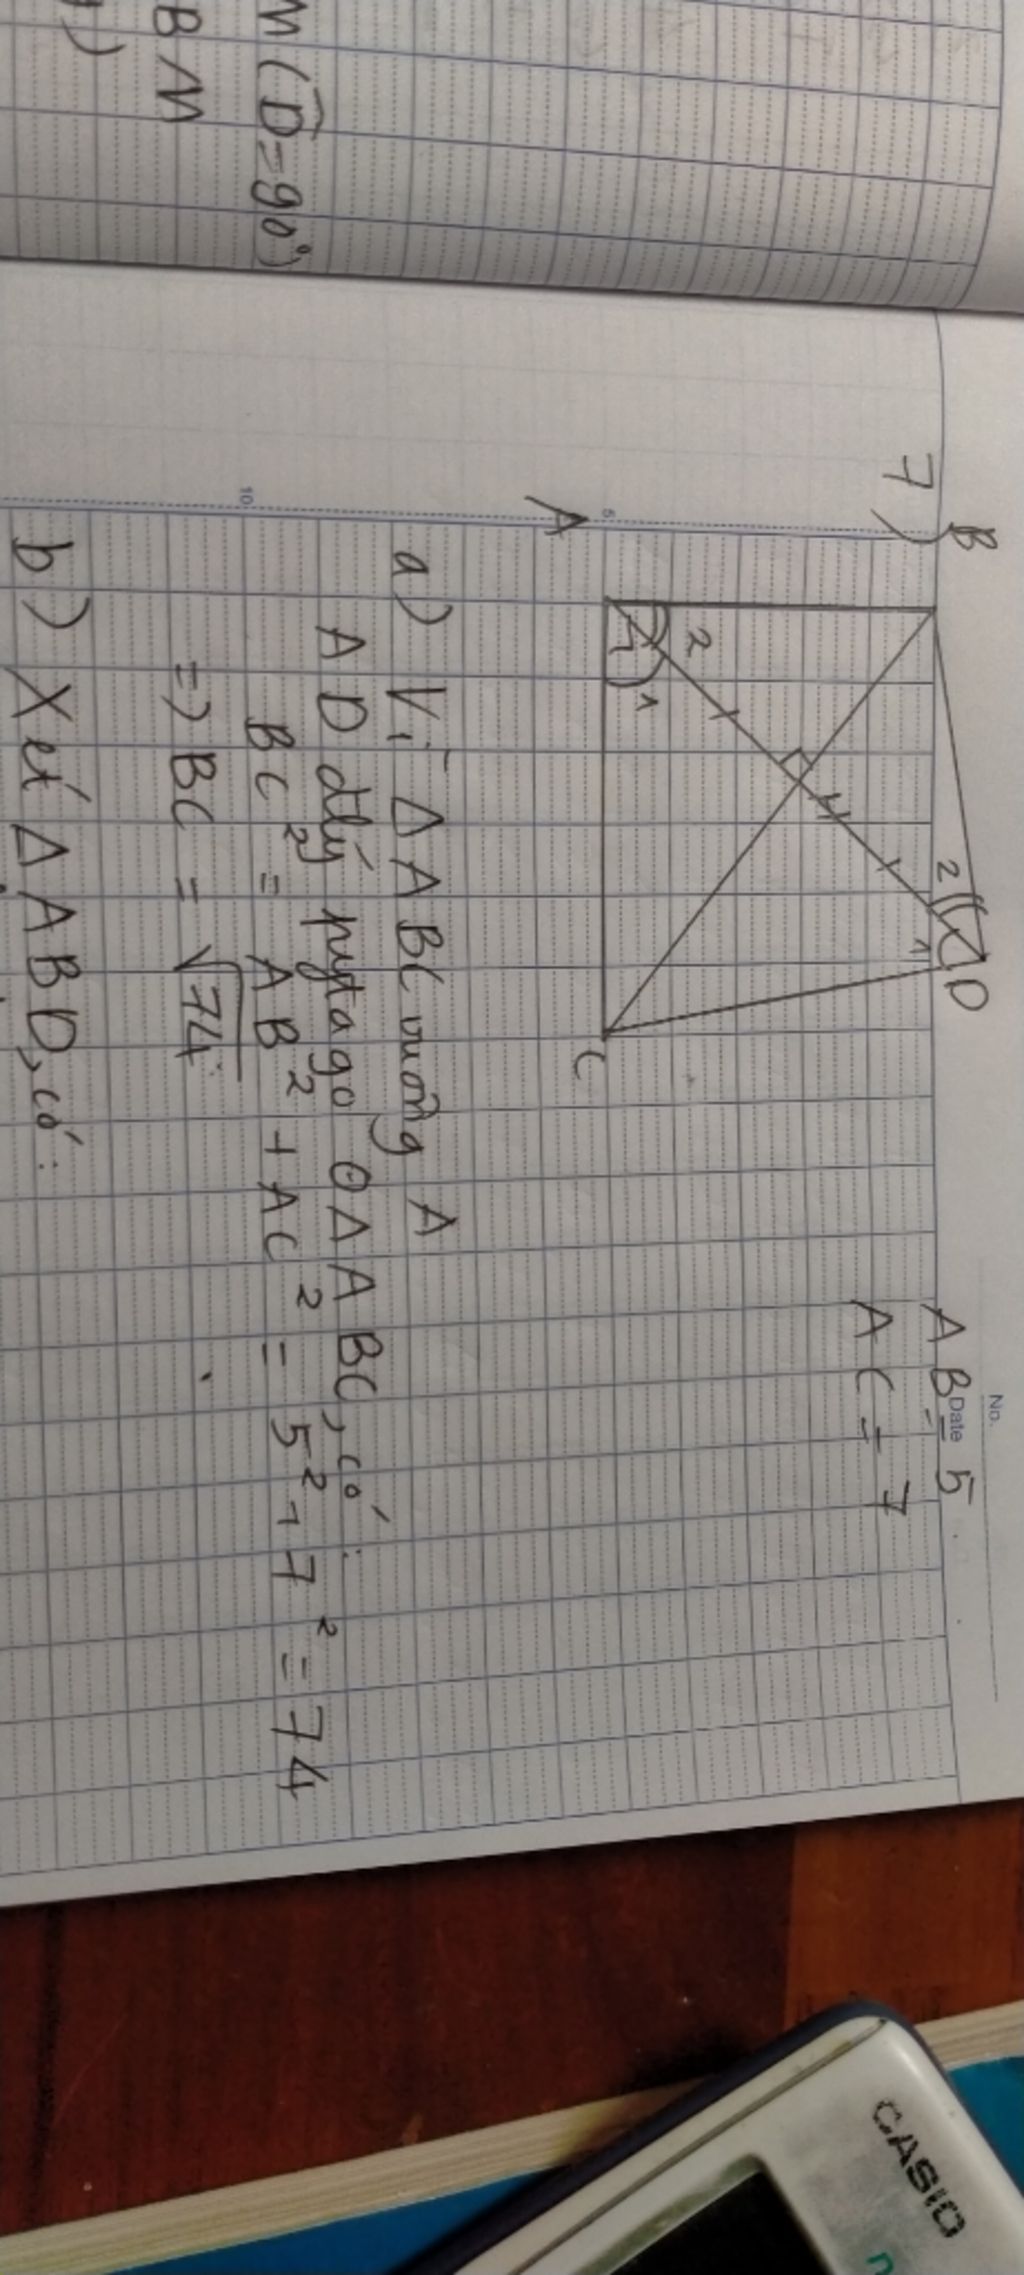 m (D̂ = 90°)
BM
No.
Date
7)
B
D
2
1
2
1
A
C
AB = 5
AC = 7
5
a) Vì Δ ABC vuông A
AD đlý pytago ΘΔ ABC, có:
BC² = AB² + AC² = 5² + 7² = 74
10
=> BC = √74
b) Xét Δ ABD, có:
CASIO